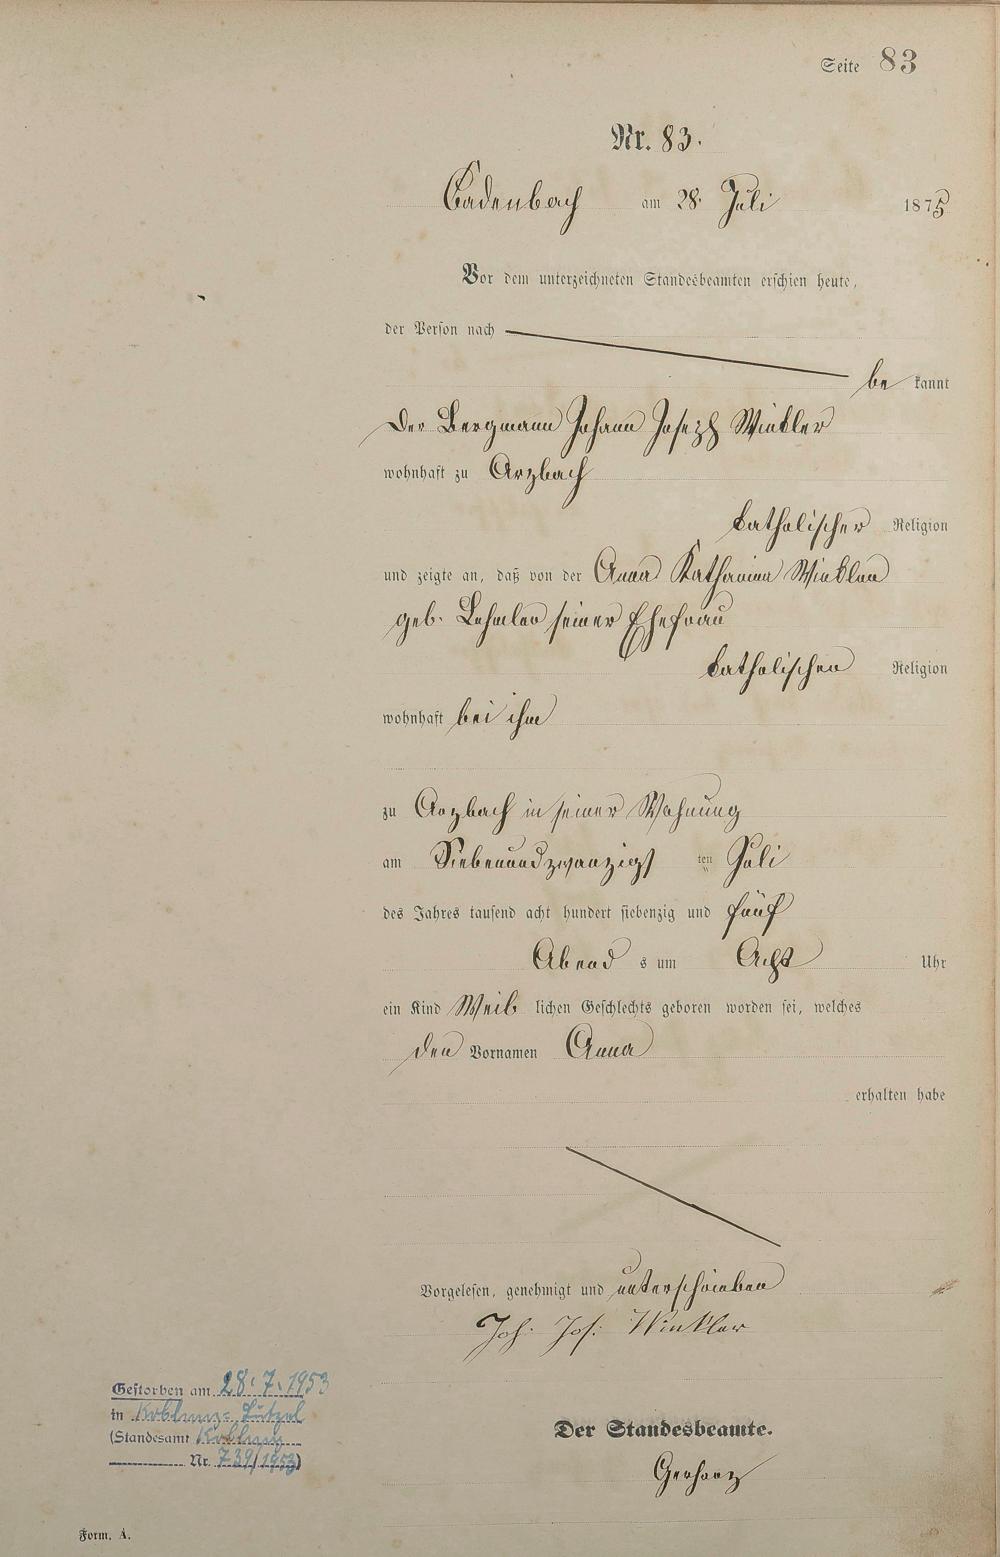 Seite 83
Nr. 83.
Cadenbach am 28. Juli 1875
Vor dem unterzeichneten Standesbeamten erschien heute,
der Person nach
be kannt
der Bergmann Johann Joseph Winkler
wohnhaft zu Arzbach
katholischer Religion
und zeigte an, daß von der Anna Katharina Winkler
geb. Lehmler seiner Ehefrau
katholischer Religion
wohnhaft bei ihm
zu Arzbach in seiner Wohnung
am Siebenundzwanzigst ten Juli
des Jahres tausend acht hundert siebenzig und fünf
Abend s um Acht Uhr
ein Kind Weib lichen Geschlechts geboren worden sei, welches
den Vornamen Anna
erhalten habe
Vorgelesen, genehmigt und unterschrieben
Joh. Jos. Winkler
Gestorben am 28.7.1953
in Koblenz-Lützel
(Standesamt Koblenz
Nr. 739/1953)
Der Standesbeamte.
Gerharz
Form. A.